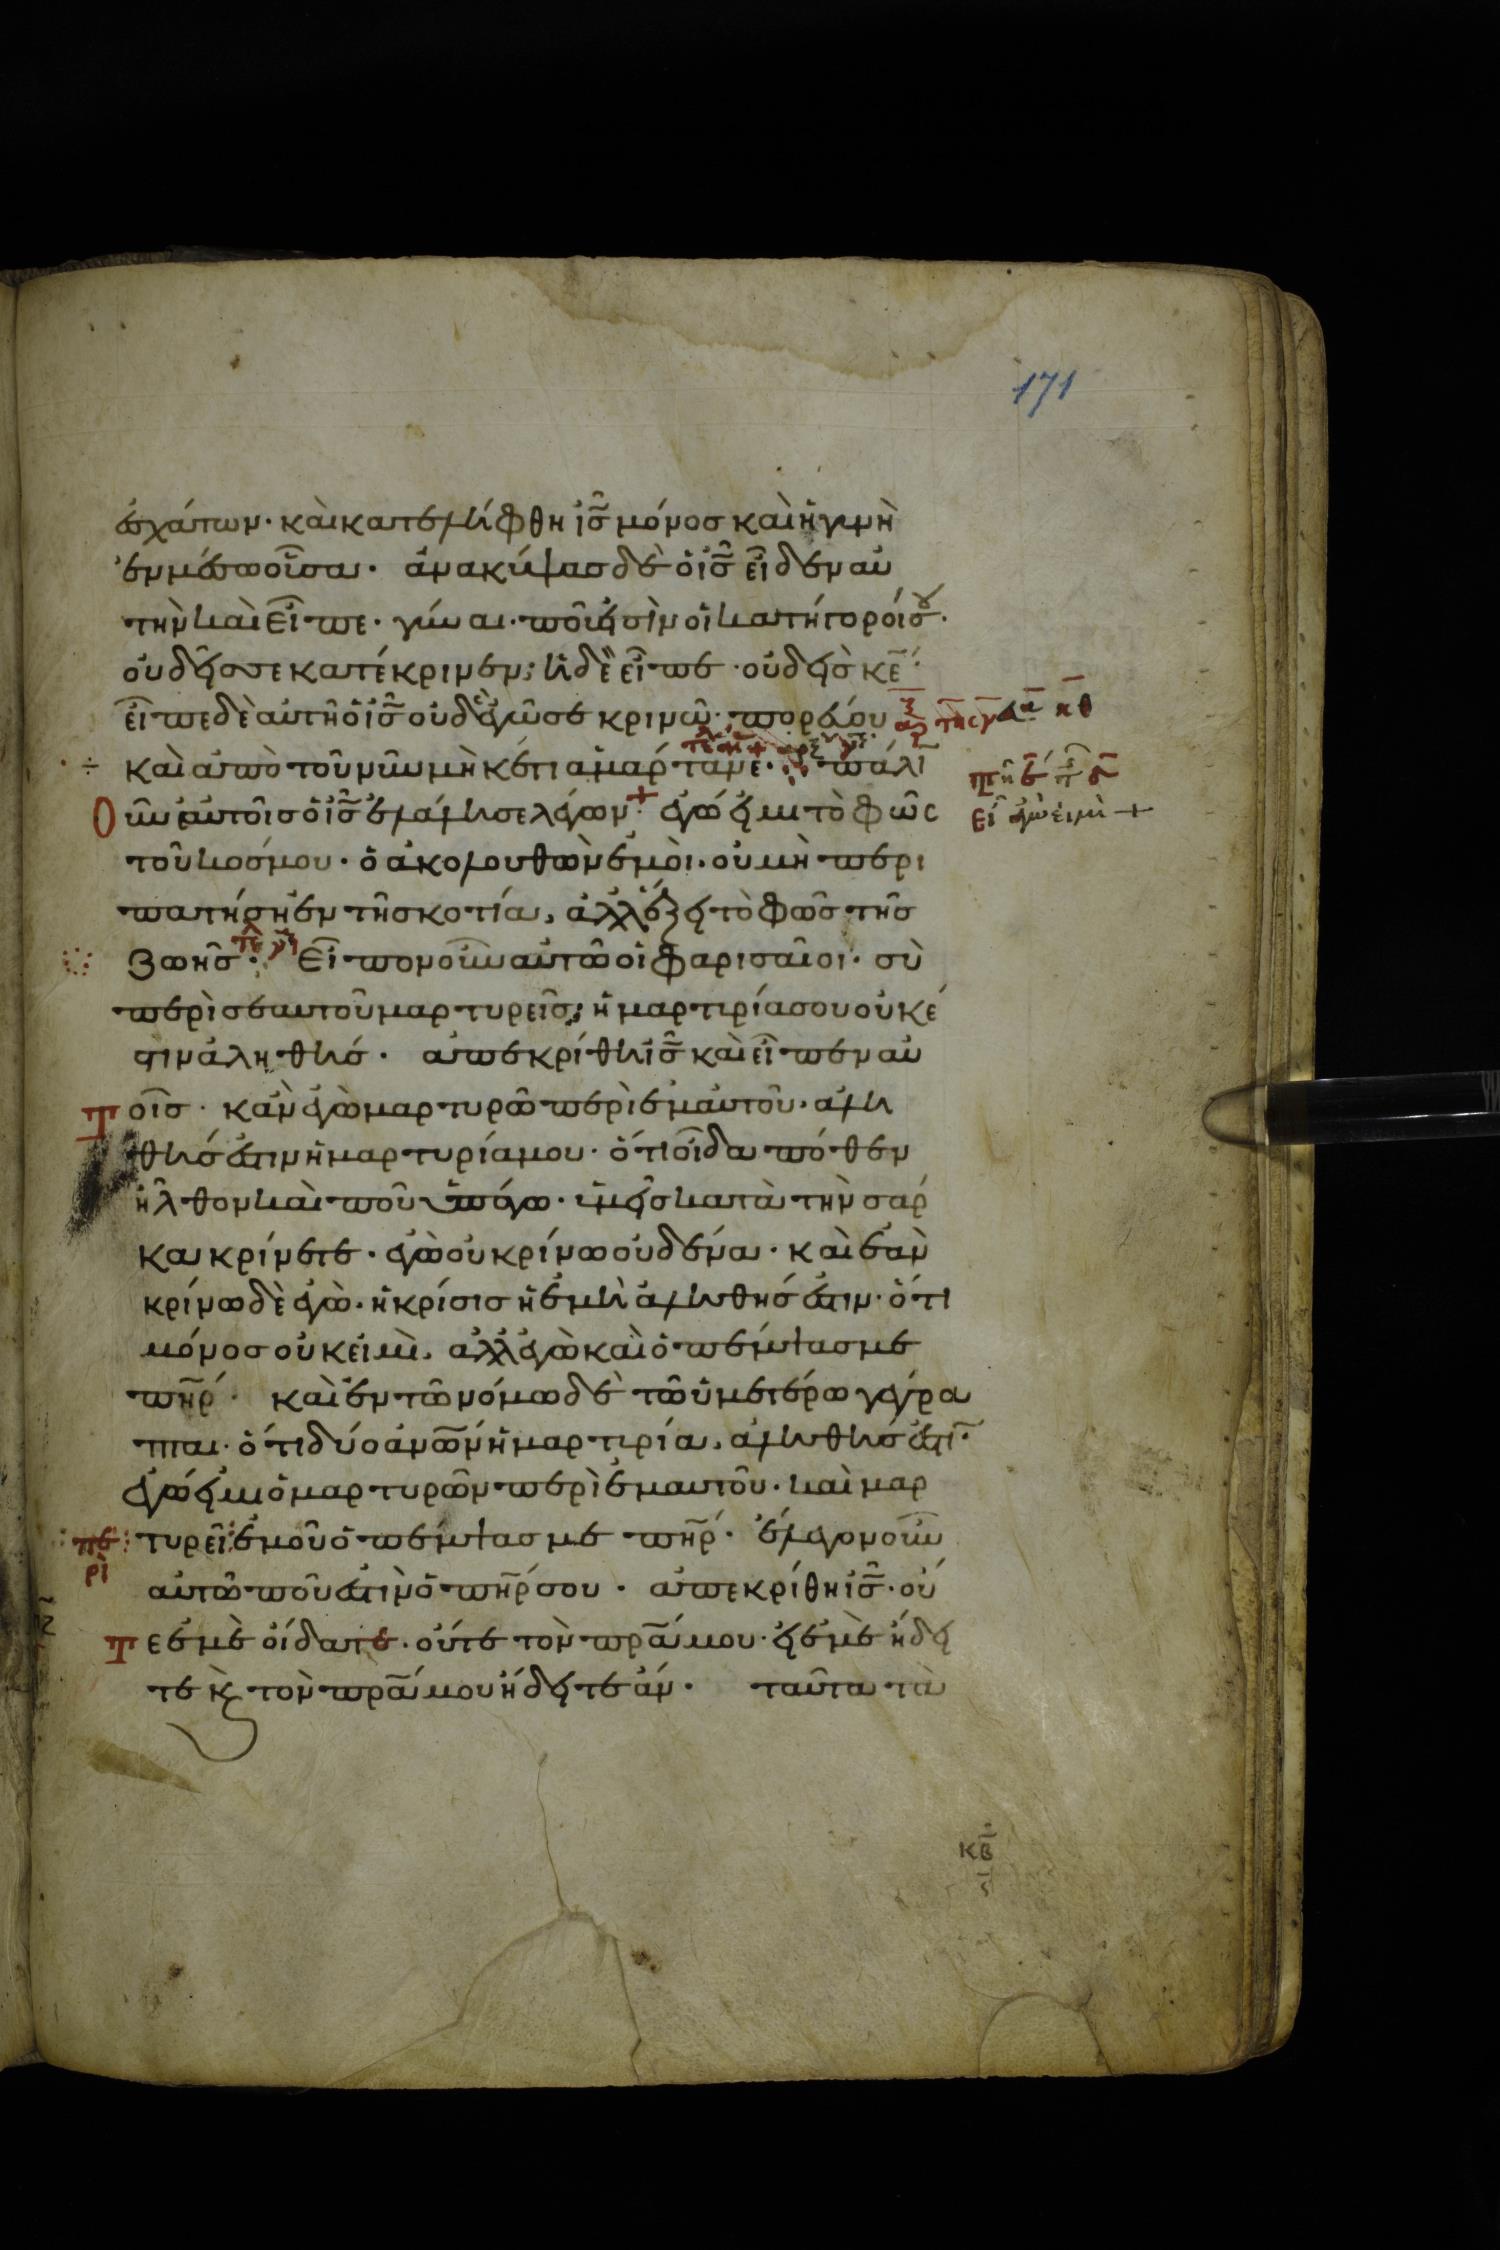 171
ἐσχάτων· καὶ κατελήφθη ἰς̅ μόνος καὶ ἡ γυνὴ
ἐν μέσω οὖσα· ἀνακύψας δὲ ὁ ἰς̅ εἶδεν αὐ
τὴν καὶ εἶπε· γύναι· ποῦ εἰσὶν οἱ κατήγοροί σου·
οὐδείς σε κατέκρινεν; ἡ δὲ εἶπε· οὐδεὶς κε̅·
εἶπε δὲ αὐτῆ ὁ ἰς̅ οὐδὲ ἐγὼ σε κρινῶ· πορεύου
καὶ ἀπὸ τοῦ νῦν μὴκέτι ἁμάρτανε· πάλι̅
Οὖν αὐτοῖς ὁ ἰς̅ ἐλάλησε λέγων· ἐγώ εἰμι τὸ φῶς
εἶ ἐγὼ εἰμὶ +
τοῦ κόσμου· ὁ ἀκολουθῶν ἐμοὶ· οὐ μὴ περι
πατήσῃ ἐν τῆ σκοτία, ἀλλ' ἕξει τὸ φῶς τῆς
ζωῆς· Εἶπον οὖν αὐτῶ οἱ φαρισαῖοι· σὺ
περὶ σεαυτοῦ μαρτυρεῖς; ἡ μαρτυρία σου οὐκ έ
στιν ἀληθής· ἀπεκρίθη ἰς̅ καὶ εἶπεν αὐ
Τοῖς· κἂν ἐγὼ μαρτυρῶ περὶ ἐμαυτοῦ· ἀλη
θής ἐστιν ἡ μαρτυρία μου· ὅτι οἶδα πόθεν
ἦλθον καὶ ποῦ ὑπάγω· ὑμεῖς κατὰ τὴν σάρ
κα κρίνετε· ἐγὼ οὐ κρίνω οὐδένα· καὶ ἐὰν
κρίνω δὲ ἐγὼ· ἡ κρίσις ἡ ἐμὴ ἀληθής ἐστιν· ὅτι
μόνος οὐκ εἰμὶ, ἀλλ' ἐγὼ καὶ ὁ πέμψας με
πη̅ρ· καὶ ἐν τῶ νόμω δὲ τῶ ὑμετέρω γέγρα
πται· ὅτι δύο ἀνω̅ν ἡ μαρτυρία, ἀληθής ἐστι̅·
ἐγώ εἰμι ὁ μαρτυρῶν περὶ ἐμαυτοῦ· καὶ μαρ
τυρεῖ περὶ ἐμοῦ ὁ πέμψας με πη̅ρ· ἔλεγον οὖν
αὐτῶ ποῦ ἐστὶν ὁ πη̅ρ σου· ἀπεκρίθη ἰς̅· οὔ
Τε ἐμὲ οἴδατε· οὔτε τὸν πρ̅α μου· εἰ ἐμὲ ἤδει
τε κ̀ τὸν πρ̅α μου ἤδειτε ἄν· ταῦτα τὰ
κβ̅